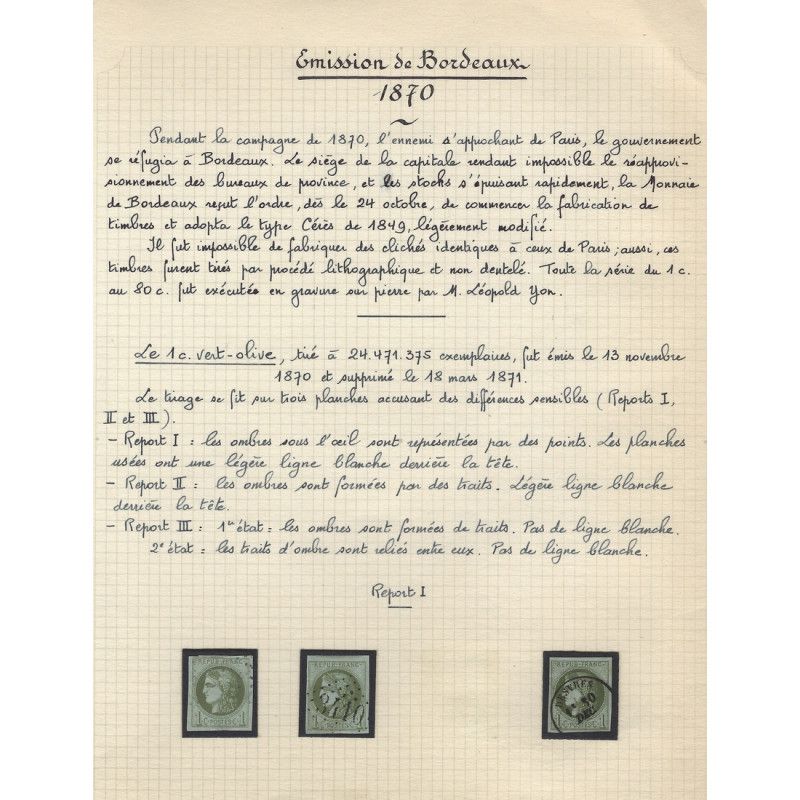 Emission de Bordeaux
1870
Pendant la campagne de 1870, l'ennemi s'approchant de Paris, le gouvernement
se réfugia à Bordeaux. Le siège de la capitale rendant impossible le réapprovi-
sionnement des bureaux de province, et les stocks s'épuisant rapidement, la Monnaie
de Bordeaux reçut l'ordre, dès le 24 octobre, de commencer la fabrication de
timbres et adopta le type Cérès de 1849, légèrement modifié.
Il fut impossible de fabriquer des clichés identiques à ceux de Paris ; aussi, ces
timbres furent tirés par procédé lithographique et non dentelé. Toute la série du 1 c.
au 80 c. fut exécutée en gravure sur pierre par M. Léopold Yon.
Le 1 c. vert-olive, tiré à 24.471.375 exemplaires, fut émis le 13 novembre
1870 et supprimé le 18 mars 1871.
Le tirage se fit sur trois planches accusant des différences sensibles (Reports I,
II et III).
- Report I : les ombres sous l'œil sont représentées par des points. Les planches
usées ont une légère ligne blanche derrière la tête.
- Report II : les ombres sont formées par des traits. Légère ligne blanche
derrière la tête.
- Report III : 1er état : les ombres sont formées de traits. Pas de ligne blanche.
2e état : les traits d'ombre sont reliés entre eux. Pas de ligne blanche.
Report I
REPUB·FRANC· REPUB·FRANC· REPUB·FRANC·
20
DEC
1 C·POSTES·C· 1 1 POSTES 1 C·POSTES·C· 1